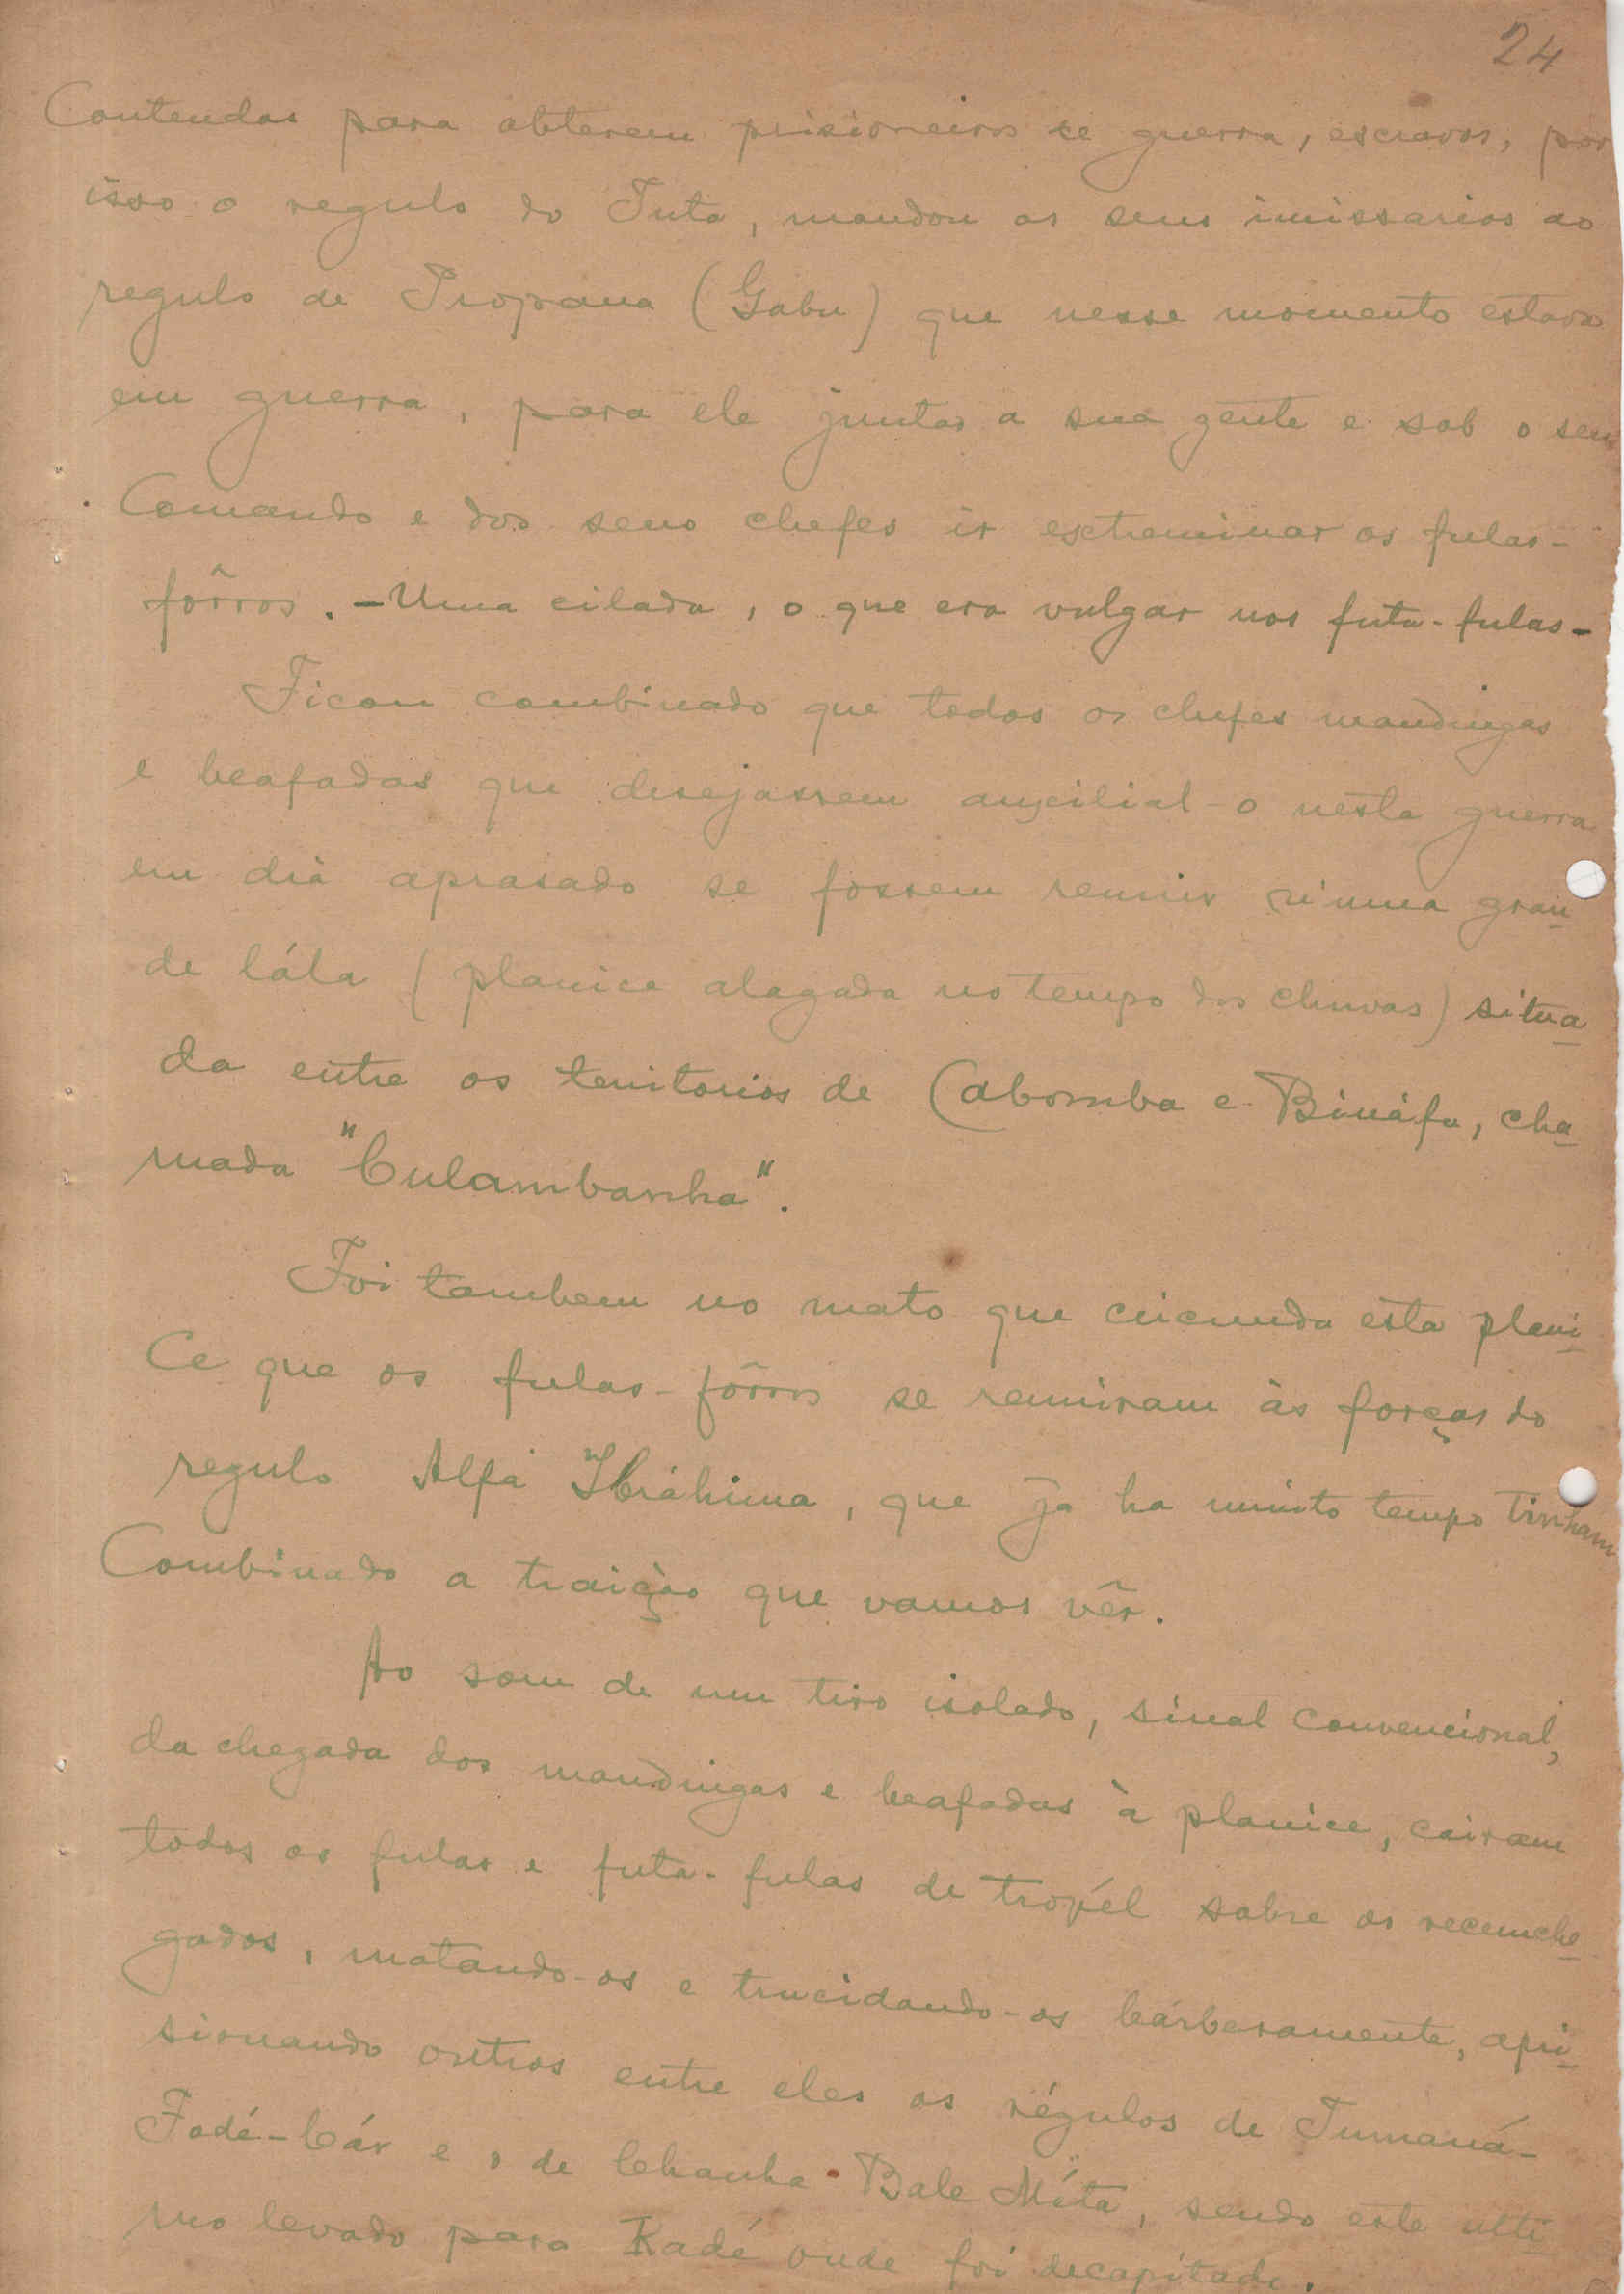 24
Contendas para obterem prisioneiros de guerra, escravos, por
isso o regulo do Futa, mandou os seus imissarios ao
regulo de Propana (Gabu) que nesse momento estava
em guerra, para ele juntar a sua gente e sob o seu
Comando e dos seus chefes ir extreminar os fulas-
fôrros. - Uma cilada, o que era vulgar nos futa-fulas -
Ficou combinado que todos os chefes mandingas
e beafadas que desejassem auxilial-o nesta guerra
em dia aprasado se fossem reunir n'uma gran
de lála (planice alagada no tempo das chuvas) situa
da entre os territorios de Cabomba e Bináfa, cha
mada "Culambanha".
Foi tambem no mato que circunda esta plani
Ce que os fulas-fôrros se reuniram às forças do
regulo Alfá Ibráhima, que já ha muito tempo tinham
Combinado a traição que vamos vêr.
Ao som de um tiro isolado, sinal convencional,
da chegada dos mandingas e beafadas à planice, cairam
todos os fulas e futa-fulas de tropél sobre os recemche
gados, matando-os e trucidando-os bárberamente, apri
sionando outros entre eles os régulos de Tumaná-
Fodé-Cár e o de Chanha Bale Méta, sendo este ulti
mo levado para Kadé onde foi decapitado.